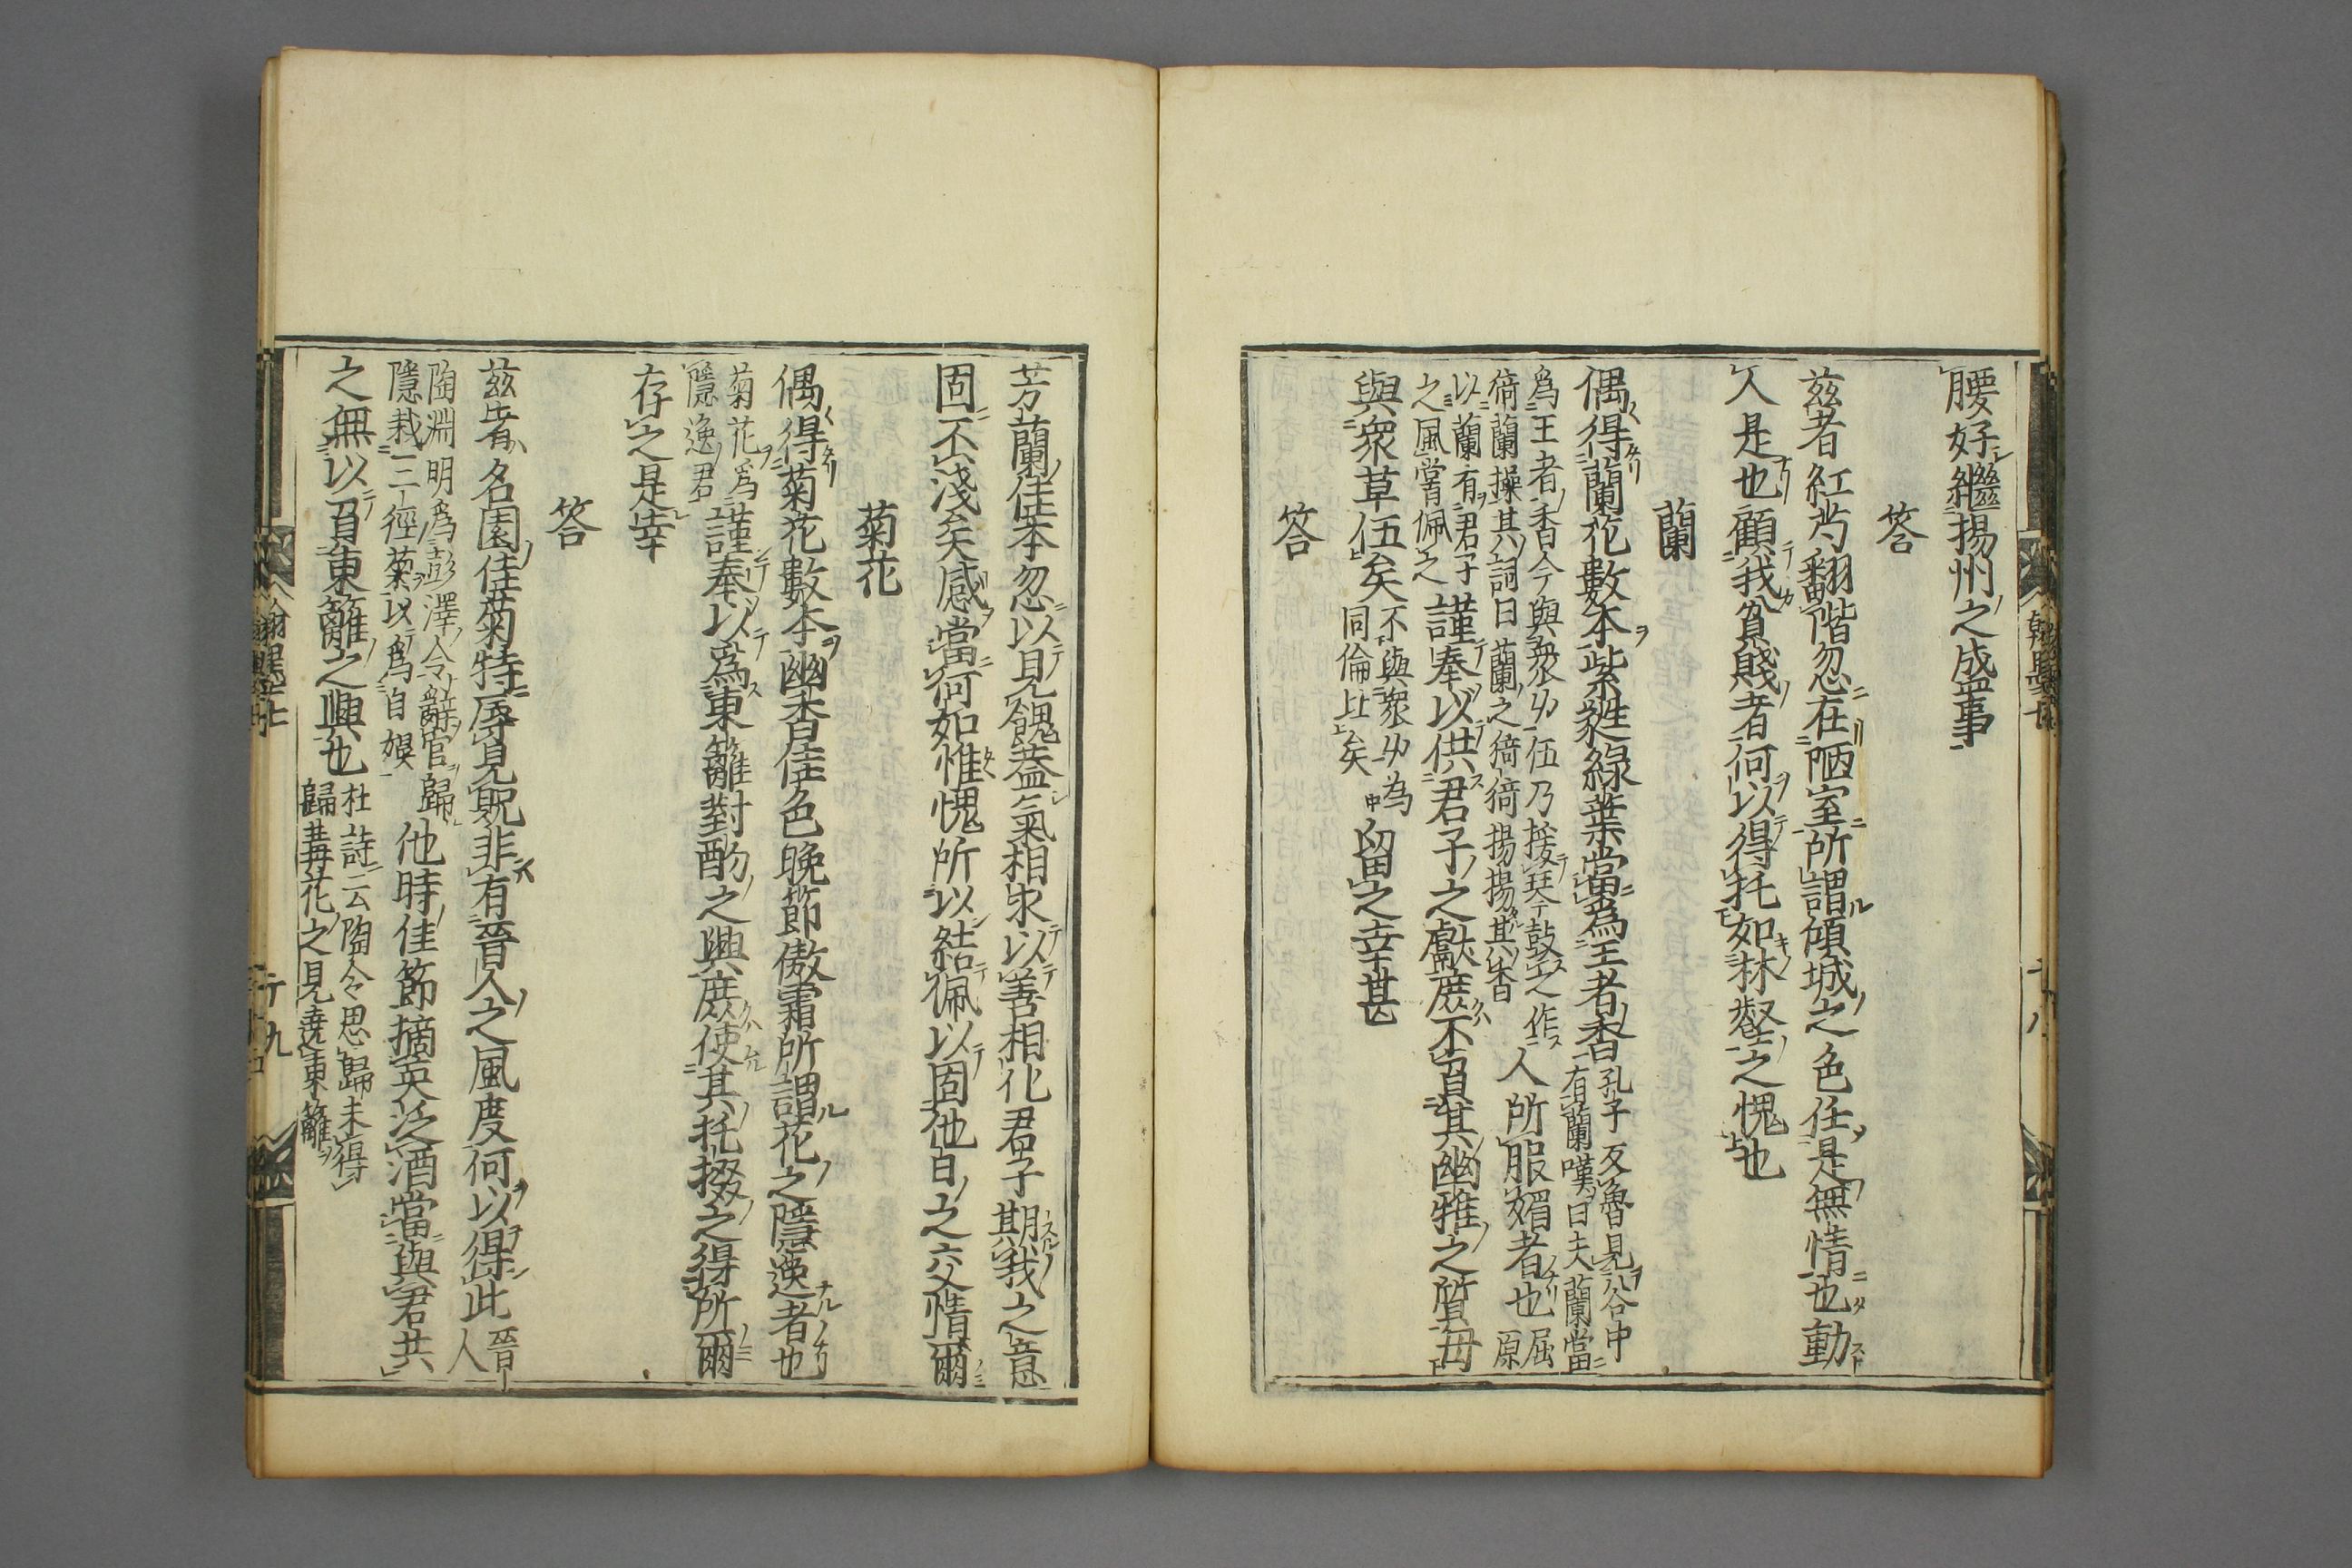 腰好繼揚州之盛事
答
茲者紅芍翻階忽在陋室所謂傾城之色任是無情也動
人是也顧我貧賤者何以得托如林壑之愧也
蘭
偶得蘭花數本紫蕤綠葉當為王者香孔子反魯見谷中
有蘭嘆曰夫蘭當
爲王者香今與衆艸伍乃接琴鼓之作
猗蘭操其詞曰蘭之猗猗揚揚其香人所服媚者也屈
原
以蘭有君子
之風嘗佩之謹奉以供君子之獻庶不負其幽雅之質毋
與衆草伍矣不與衆艸為
同倫比矣留之幸甚
答
芳蘭佳本忽以見餽蓋氣相求以善相化君子期我之意
固不淺矣感當何如惟愧所以結佩以固他日之交情爾
菊花
偶得菊花數本幽香佳色晚節傲霜所謂花之隱逸者也
菊花爲
隱逸君謹奉以爲東籬對酌之興庶使其托掇之得所爾
存之是幸
答
茲者名園佳菊特辱見貺非有晉人之風度何以得此晉
人
陶淵明爲彭澤令辭官歸
隱栽三徑菊以爲自娛他時佳節摘英泛酒當與君共
之無以負東籬之興也杜詩云陶令思歸未得
歸其花之見遶東籬